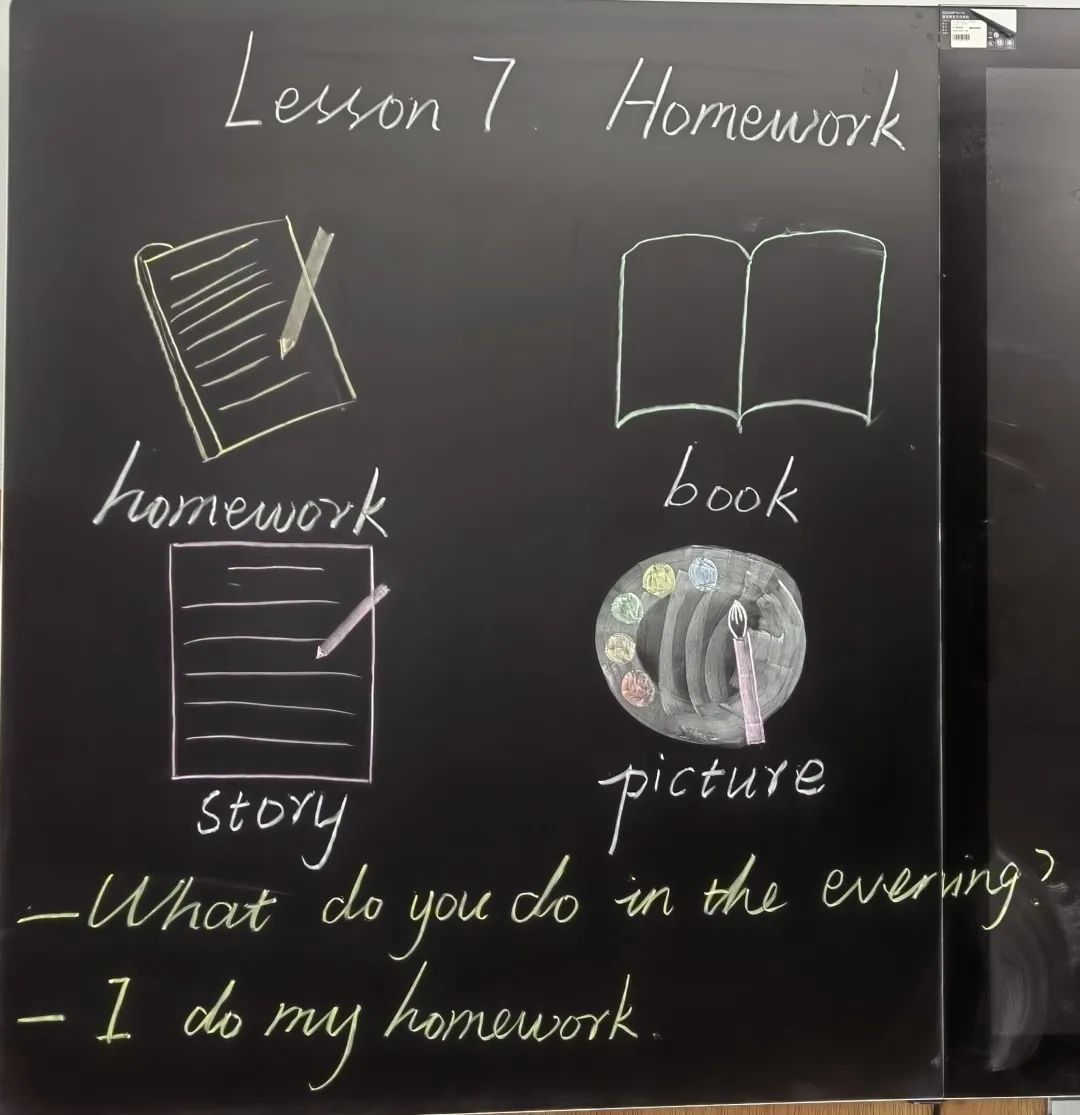 Lesson 7 Homework
homework book
story picture
—What do you do in the evening?
— I do my homework.